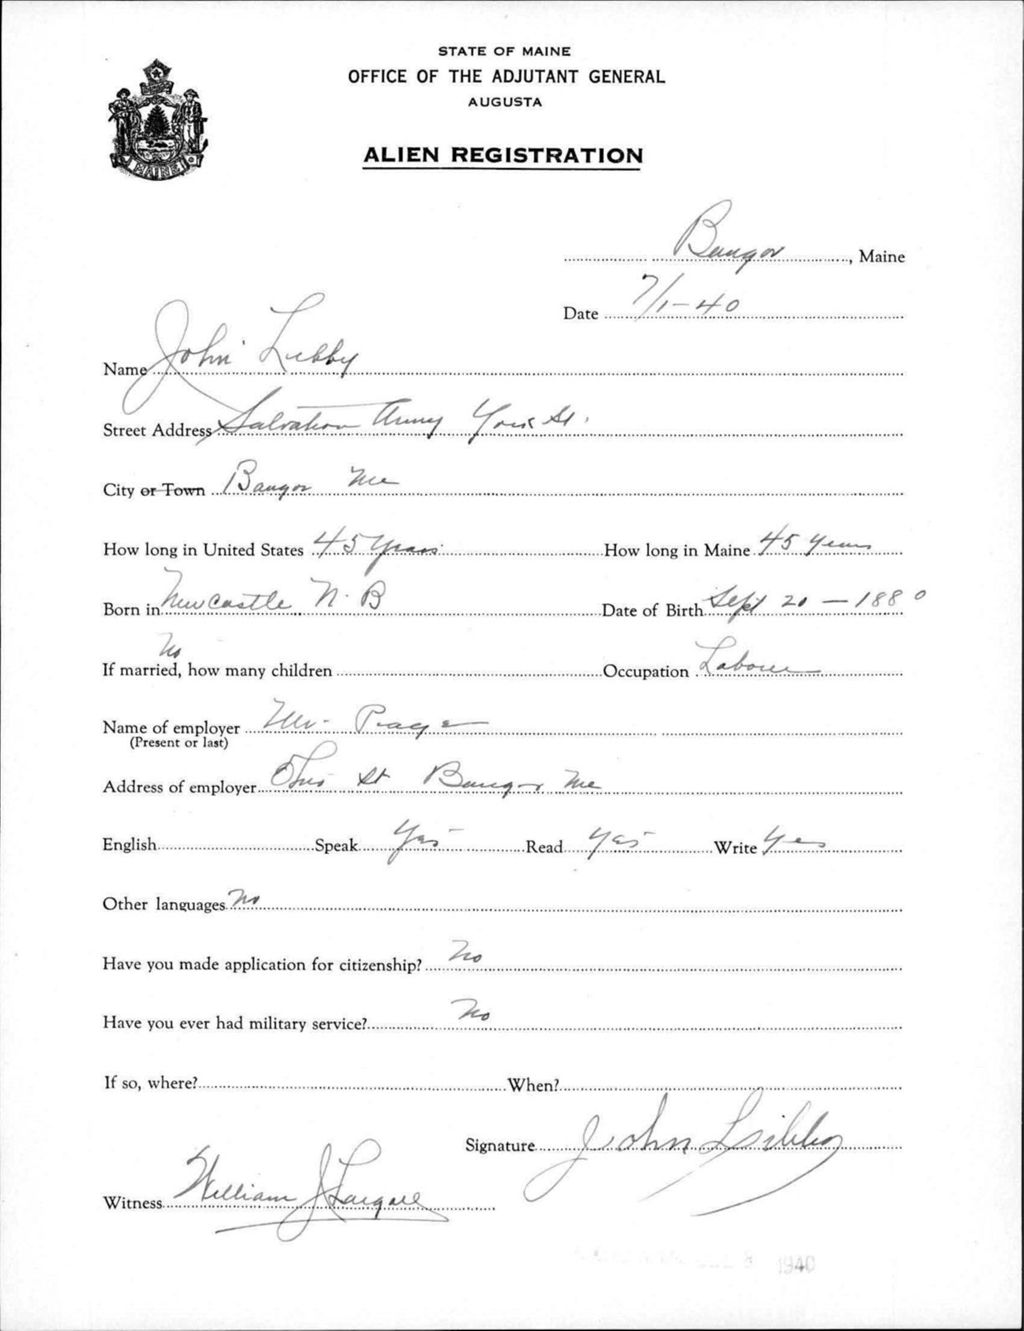 STATE OF MAINE
OFFICE OF THE ADJUTANT GENERAL
AUGUSTA
MAINE
ALIEN REGISTRATION
Bangor, Maine
Date 7/1-40
Name John Libby
Street Address Salvation Army York St.
City or Town Bangor Me
How long in United States 45 years How long in Maine 45 years
Born in Newcastle N. B Date of Birth Sept 20 - 1880
If married, how many children No Occupation Laborer
Name of employer Mr. Page
(Present or last)
Address of employer Ohio St Bangor Me
English Speak Yes Read Yes Write Yes
Other languages No
Have you made application for citizenship? No
Have you ever had military service? No
If so, where? When?
Signature John Libby
Witness William J
1940